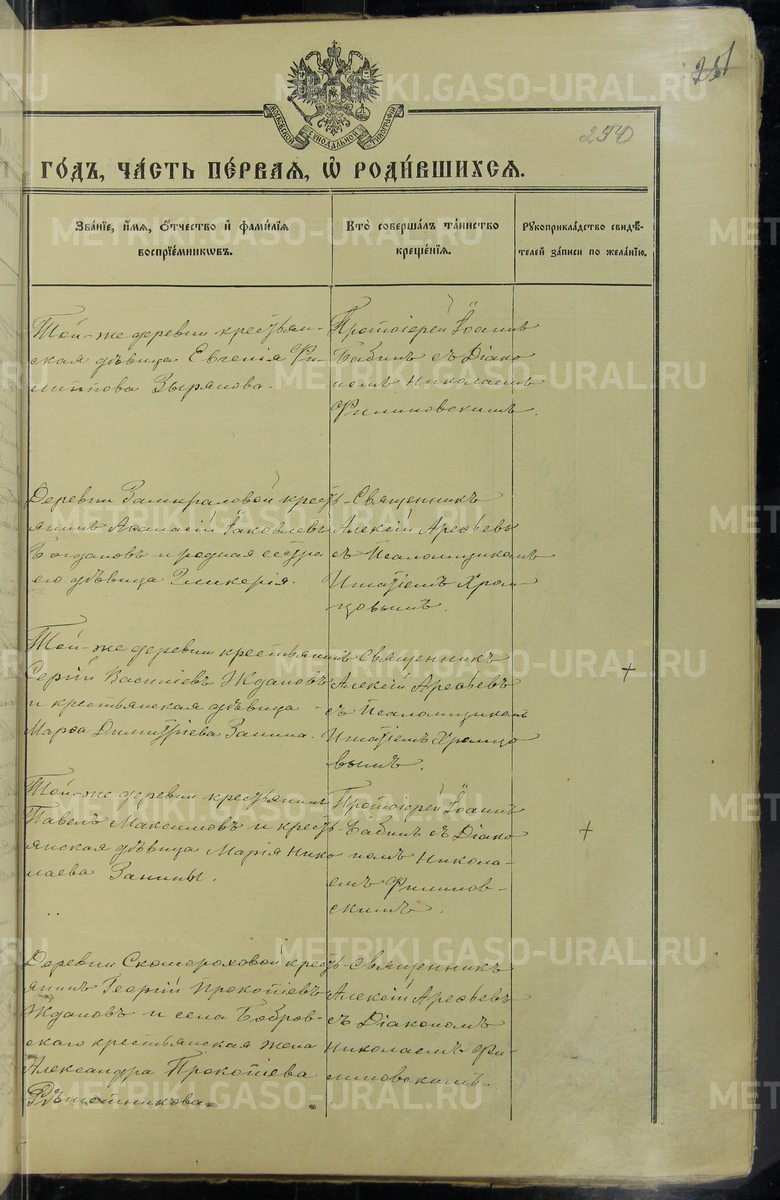 251
МОСКОВСКОЙ СѴНОДАЛЬНОЙ ТИПОГРАФІИ
240
ГО́ДЪ, ЧА́СТЬ ПЕ́РВАЯ, Ѡ҆ РОДИ́ВШИХСЯ.
Зва́нїе, и҆́мя, ѻ҆́тчество и҆ фами́лїя
воспрїе́мникѡвъ.
Кто̀ соверша́лъ та́инство
креще́нїя.
Рꙋкоприкла́дство свидѣ́-
телей за́писи по жела́нїю.
Той-же деревни крестьян-
ская дѣвица Евгенія Фи-
липпова Зырянова.
Протоіерей Іоаннъ
Бабинъ съ Діако
номъ Николаемъ
Филиповскимъ.
Деревни Замираловой кресть-
янинъ Аѳанасій Іаковлевъ
Богдановъ и родная сестра
его дѣвица Гликерія.
Священникъ
Алексій Арефьевъ
съ Псаломщикомъ
Игнатіемъ Хром-
цовымъ.
Той-же деревни крестьянинъ
Сергій Василіевъ Ждановъ
и крестьянская дѣвица -
Марѳа Димитріева Занина.
Священникъ
Алексій Арефьевъ
съ Псаломщикомъ
Игнатіемъ Хромцо
вымъ.
+
Той-же деревни крестьянинъ
Павелъ Максимовъ и кресть-
янская дѣвица Марія Нико
лаева Занины.
Протоіерей Іоаннъ
Бабинъ съ Діако
номъ Никола-
емъ Филипов-
скимъ.
+
Деревни Скомороховой кресть-
янинъ Георгій Прокопіевъ
Ждановъ и села Бобров-
скаго крестьянская жена
Александра Прокопіева
Рѣшетникова.
Священникъ
Алексій Арефьевъ
съ Діакономъ
Николаемъ Фи-
липовскимъ.
METRIKI.GASO-URAL.RU